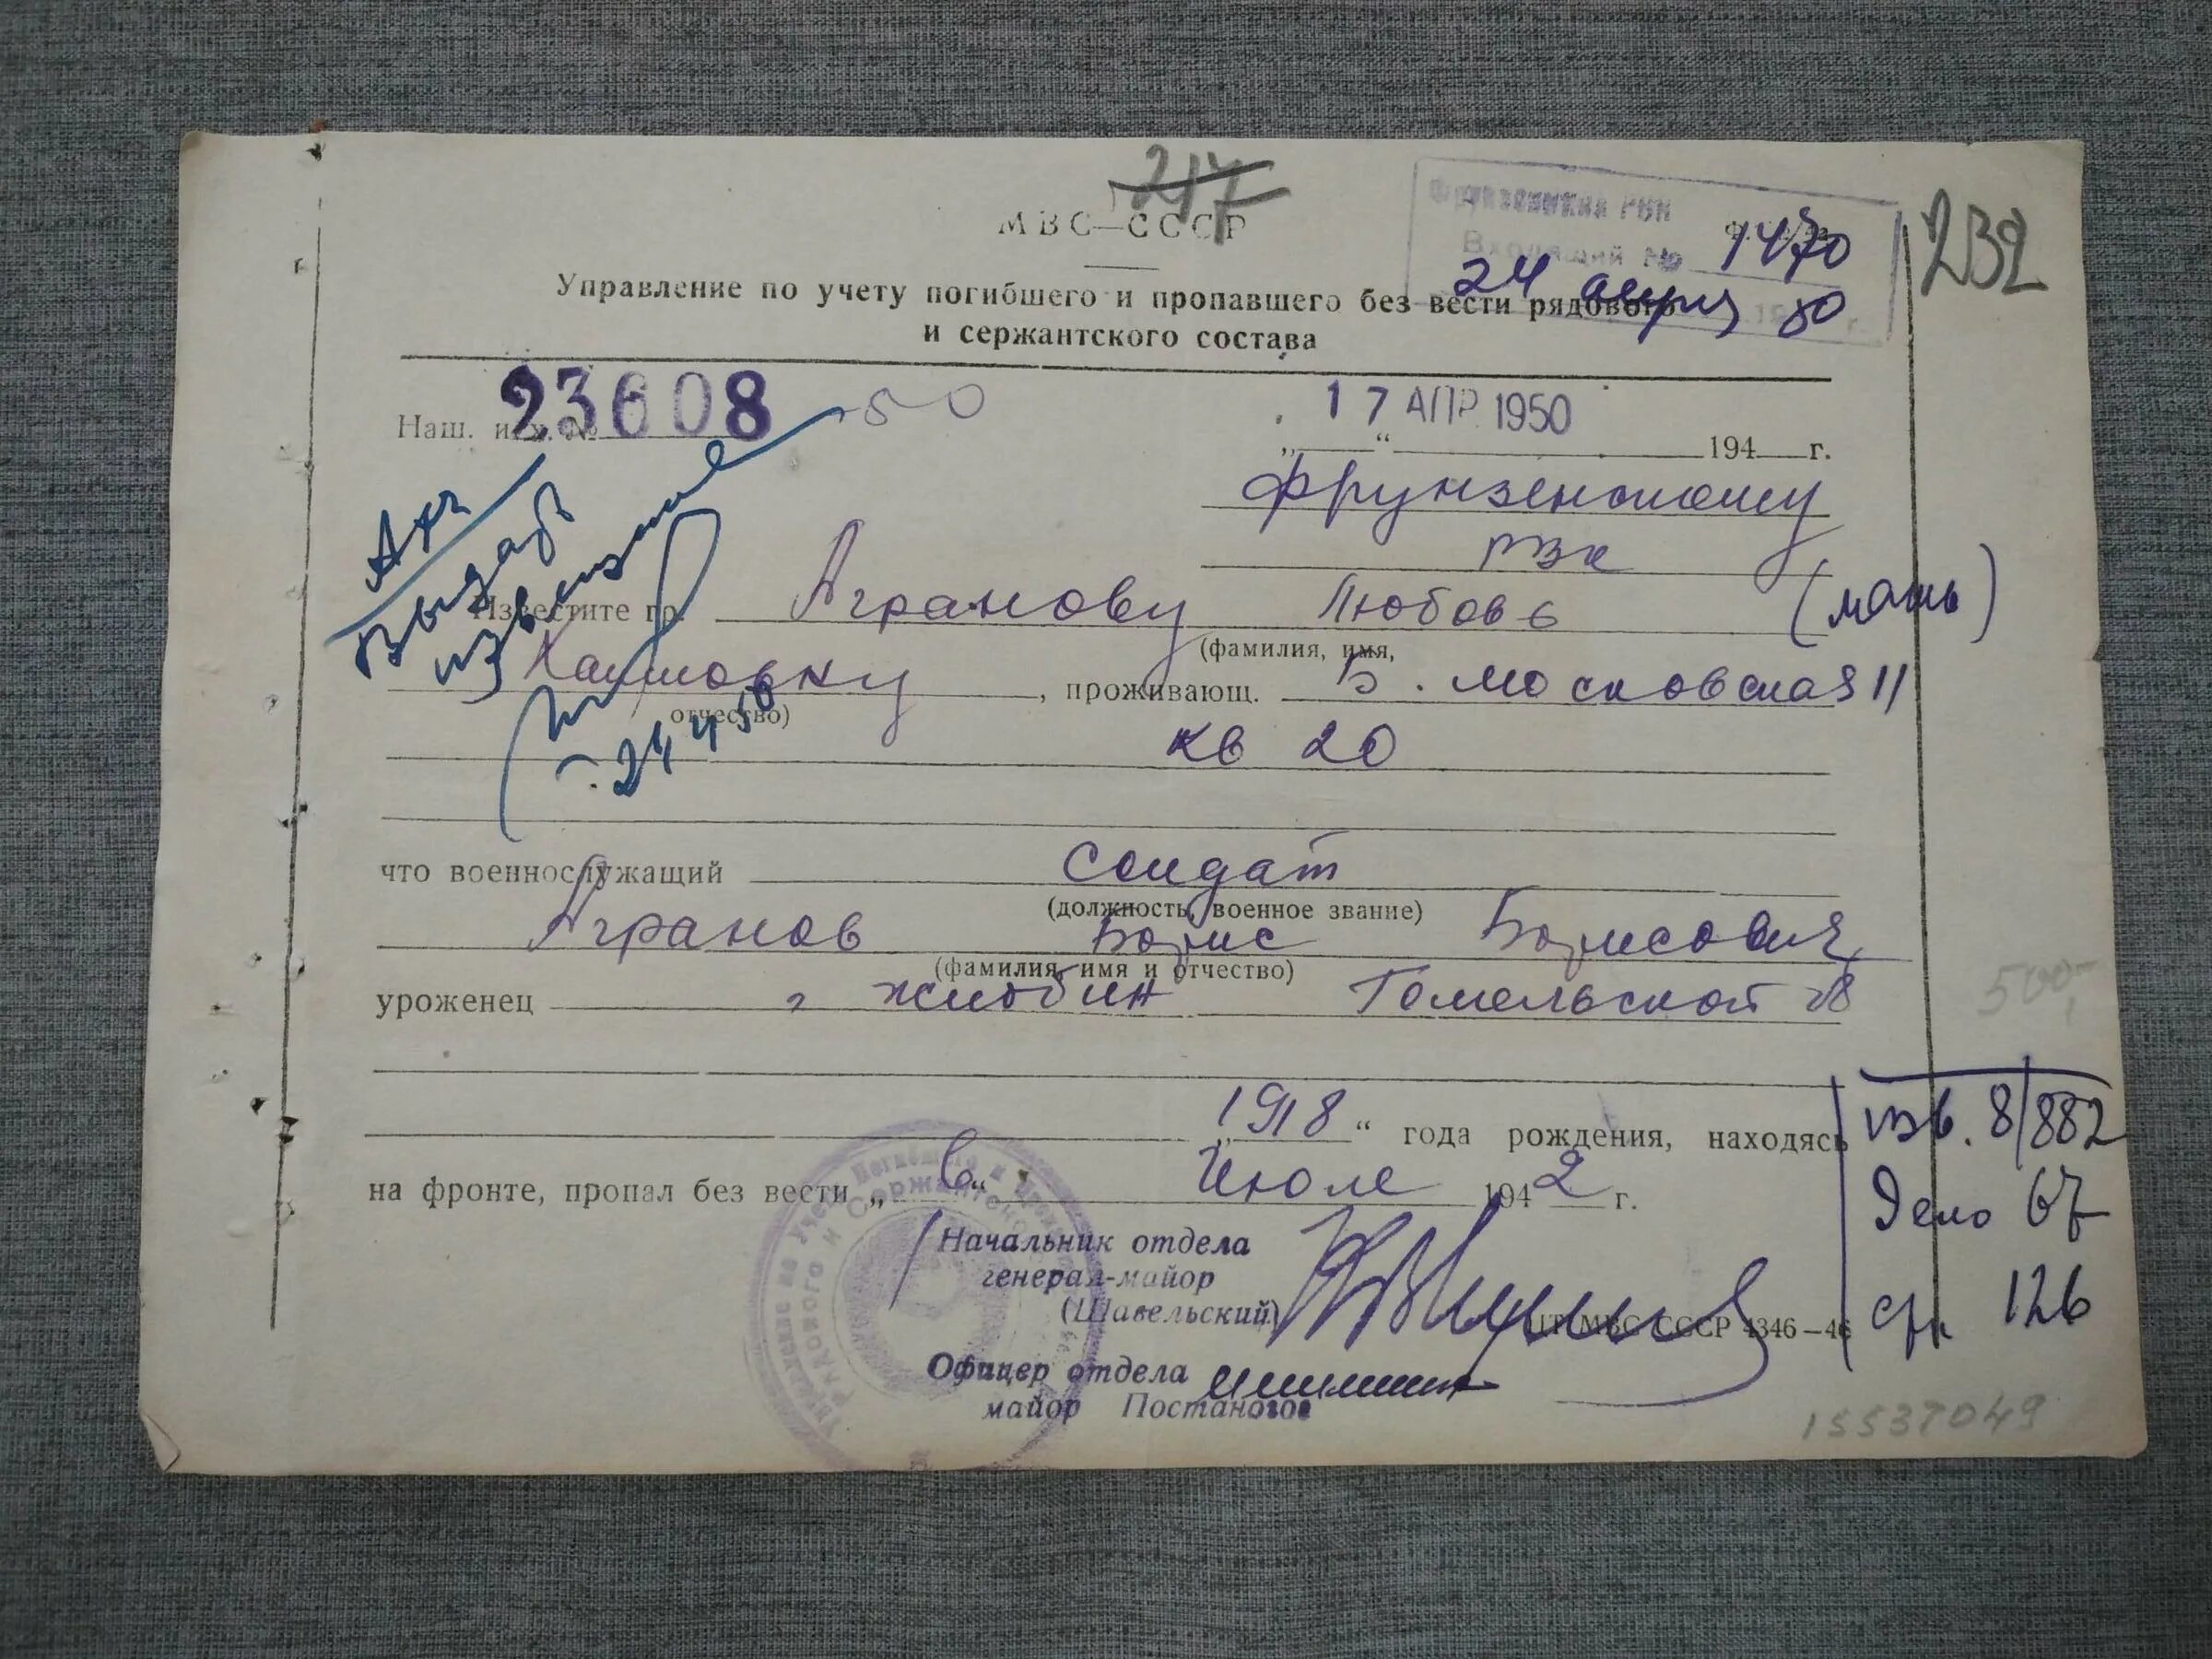 217
МВС—СССР
Фрунзенский РВК
Входящий № 1470
24 апреля 50
232
Управление по учету погибшего и пропавшего без вести рядового
и сержантского состава
Наш. исх. № 23608 -50
17 АПР 1950
„ “ 194 г.
Арх
Выдать
извещение
24 4 50
Фрунзенскому
РВК
Известите гр. Агранову Любовь (мать)
(фамилия, имя,
Хаимовну, проживающ. Б. Московская 11
отчество)
кв 20
что военнослужащий солдат
(должность, военное звание)
Агранов Борис Борисович
(фамилия, имя и отчество)
уроженец г Жлобин Гомельской об
500-
„1918“ года рождения, находясь
на фронте, пропал без вести „в“ Июле 1942 г.
изв. 8/882
Дело 67
стр 126
Начальник отдела
генерал-майор
(Шавельский)
ЦТ МВС СССР 4346—46
Офицер отдела
майор Постановов
15537049